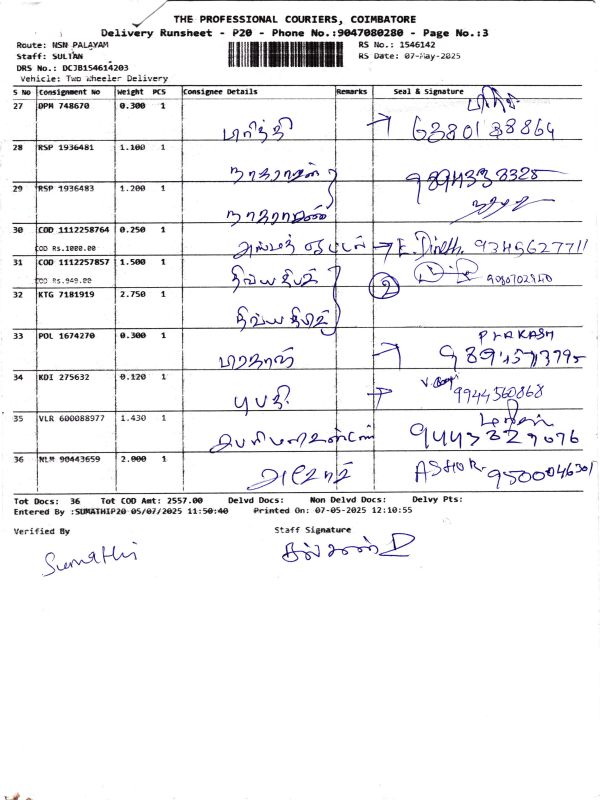 THE PROFESSIONAL COURIERS, COIMBATORE
Delivery Runsheet - P20 - Phone No.:9047080280 - Page No.:3
Route: NSN PALAYAM RS No.: 1546142
Staff: SULTAN RS Date: 07-May-2025
DRS No.: DCJB154614203
Vehicle: Two Wheeler Delivery
S No Consignment No Weight PCS Consignee Details Remarks Seal & Signature
27 DPM 748670 0.300 1
28 RSP 1936481 1.100 1
நாகராஜன்
29 RSP 1936483 1.200 1
நாகராஜன்
30 COD 1112258764 0.250 1
COD Rs.1000.00 E. Dineth. 9345627711
31 COD 1112257857 1.500 1
COD Rs.949.00 திவ்யதீபக் 2
32 KTG 7181919 2.750 1
திவ்யதீபக்
33 POL 1674270 0.300 1 PRAKASH
34 KDI 275632 0.120 1
பூபதி 9944560868
35 VLR 600088977 1.430 1
36 NLM 90443659 2.000 1
ASHOK. 9500046301
Tot Docs: 36 Tot COD Amt: 2557.00 Delvd Docs: Non Delvd Docs: Delvy Pts:
Entered By :SUMATHIP20 05/07/2025 11:50:40 Printed On: 07-05-2025 12:10:55
Verified By Staff Signature
Sumathi